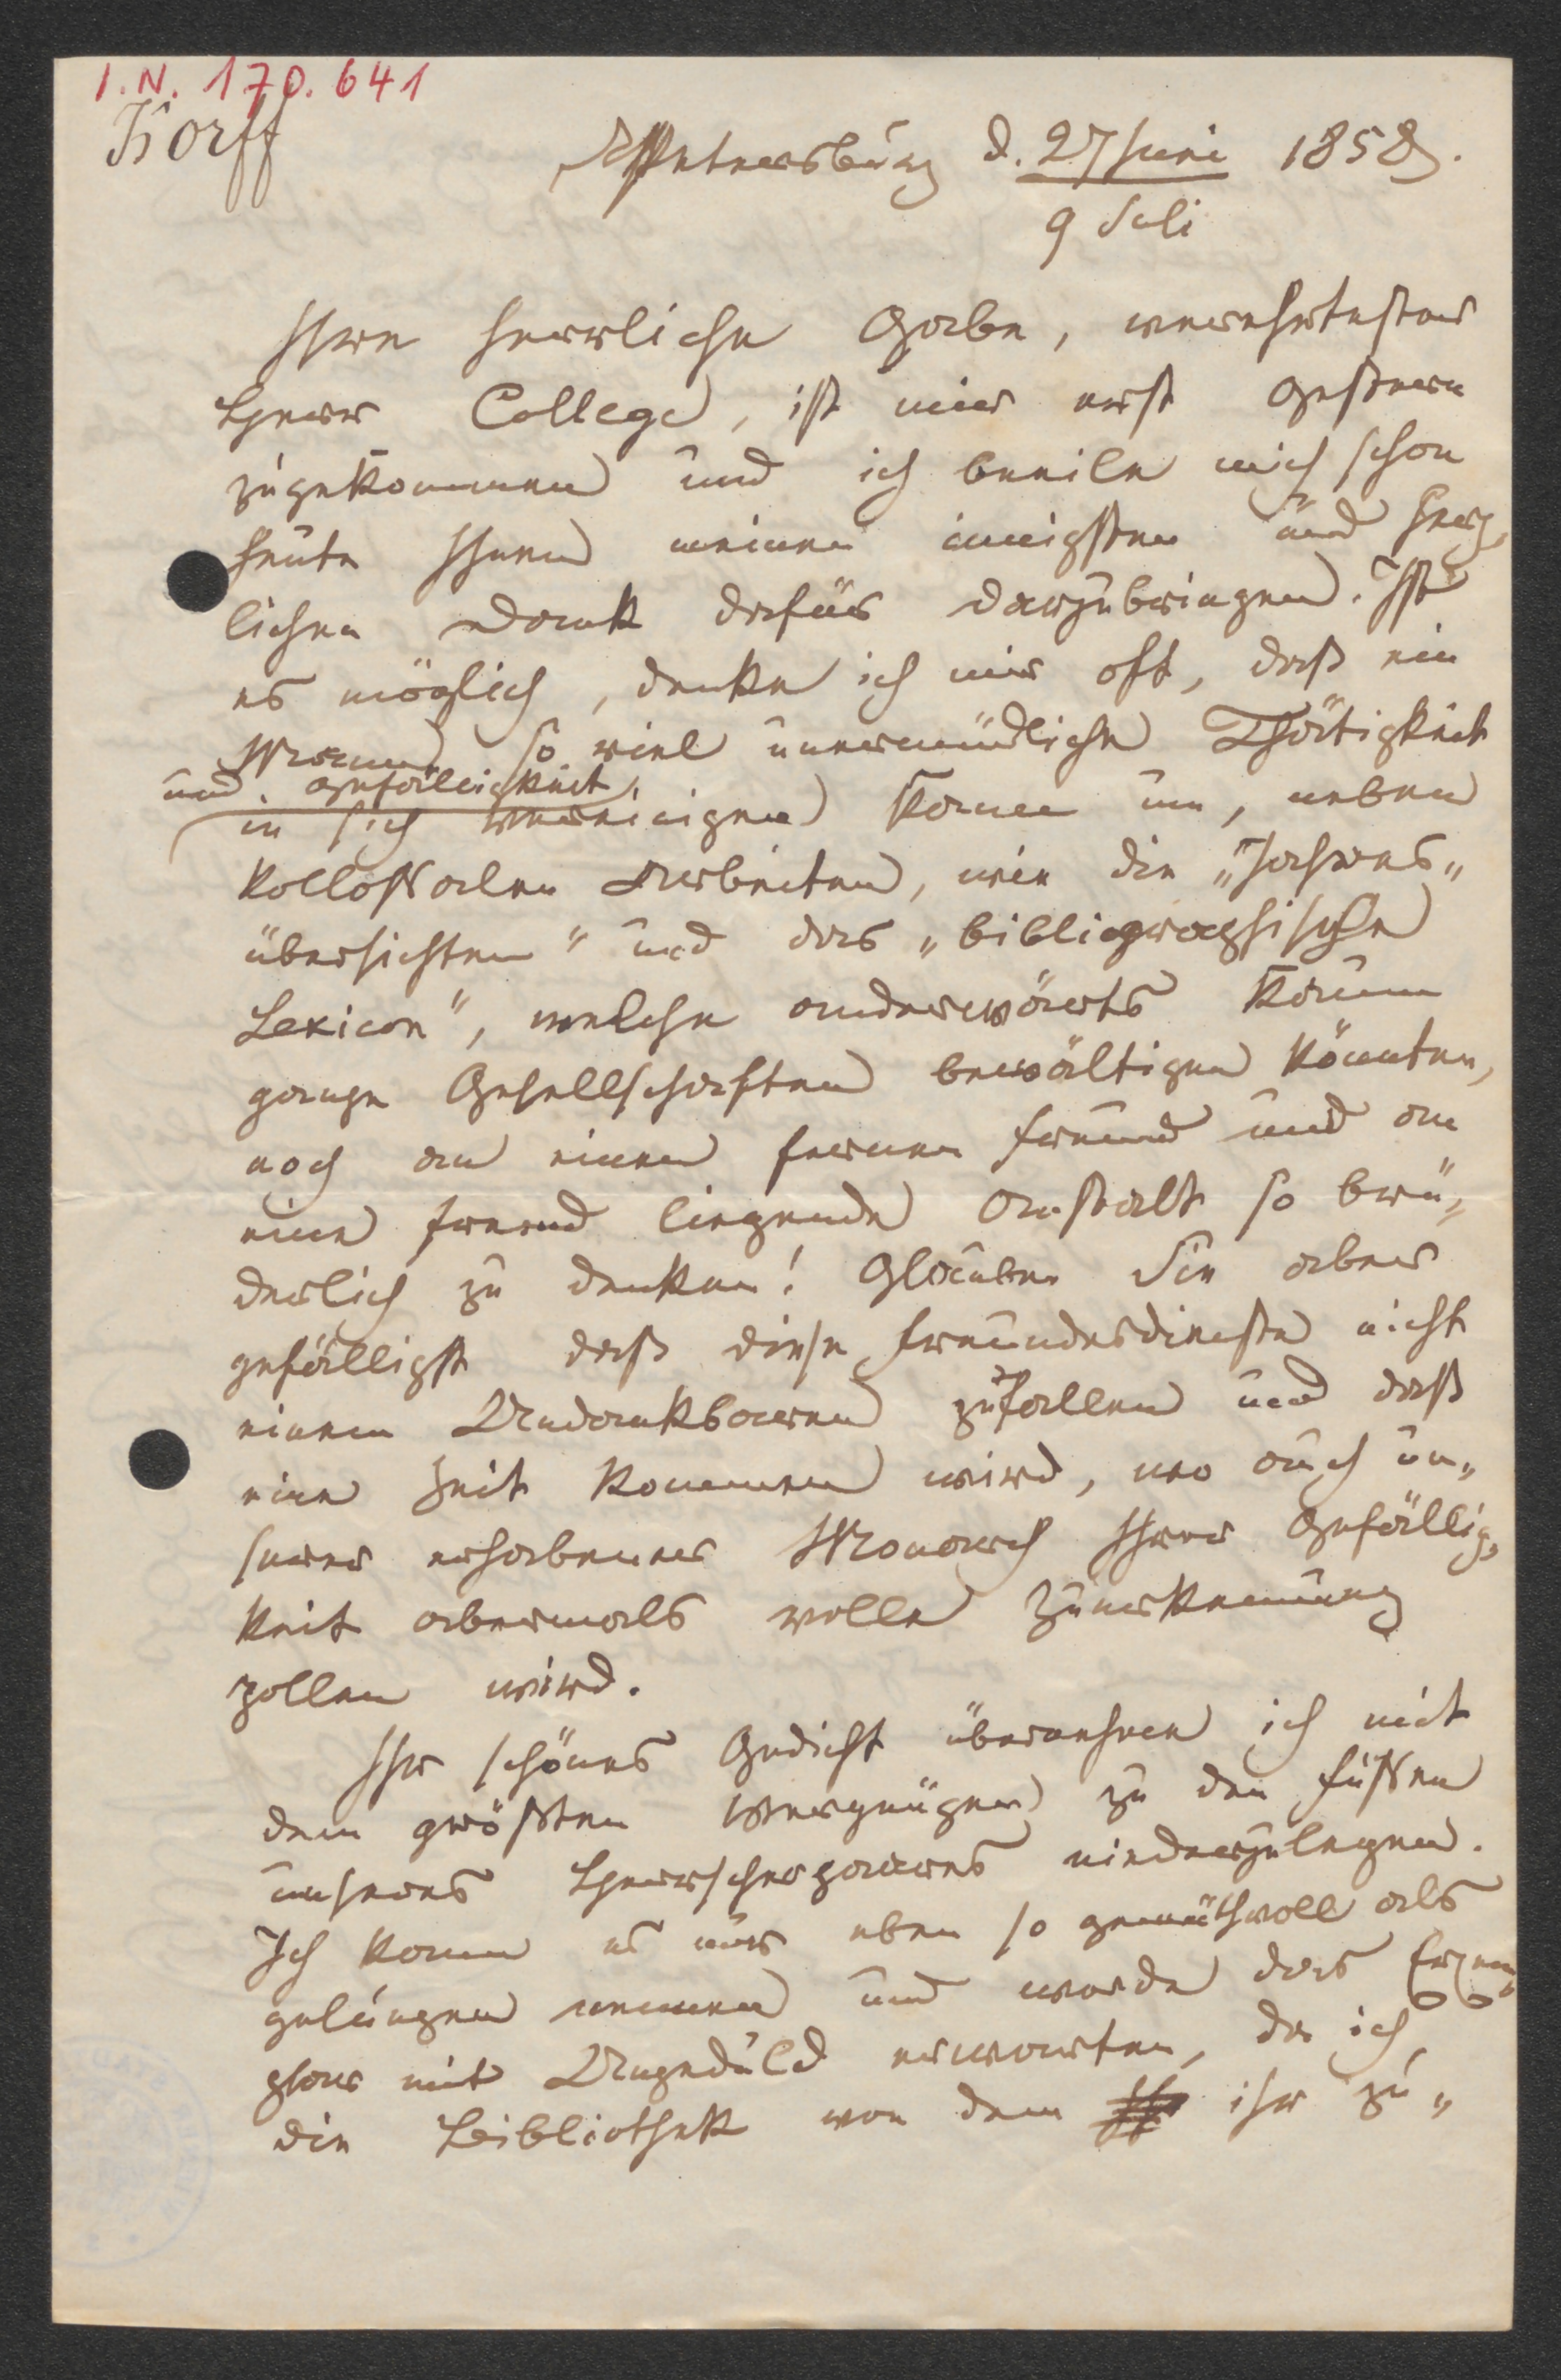 I.N. 170.641
Korff
St Petersburg d. 27 Juni 1858.
9 Juli
Ihre herrliche Gabe, verehrtester
Herr College, ist mir erst gestern
zugekommen und ich beeile mich schon
heute Ihnen meinen innigsten und herz„
lichen Dank dafür darzubringen. Ist
es möglich, denke ich mir oft, daß ein
Mann so viel unermüdliche Thätigkeit
und Gefälligkeit
in sich vereinigen kann um, neben
kollossalen Arbeiten, wie die „Jahres„
übersichten" und das „bibliographische
Lexicon", welche anderwärts kaum
ganze Gesellschaften bewältigen könnten,
noch an einen fernen Freund und an
eine fremd liegende Anstalt so brü„
derlich zu denken! Glauben Sie aber
gefälligst daß diese Freundesdienste nicht
einem Undankbaren zufallen und daß
eine Zeit kommen wird, wo auch un„
serer erhabener Monarch Ihrer Gefällig„
keit abermals volle Zuerkennung
zollen wird.
Ihr schönes Gedicht übernehme ich mit
dem größten Vergnügen zu den Füssen
unseres Herrscherpaares niederzulegen.
Ich kann es nur eben so gemüthvoll als
gelungen nennen und werde das Exem„
plar mit Ungeduld erwarten, da ich
die Bibliothek von dem ihr zu„